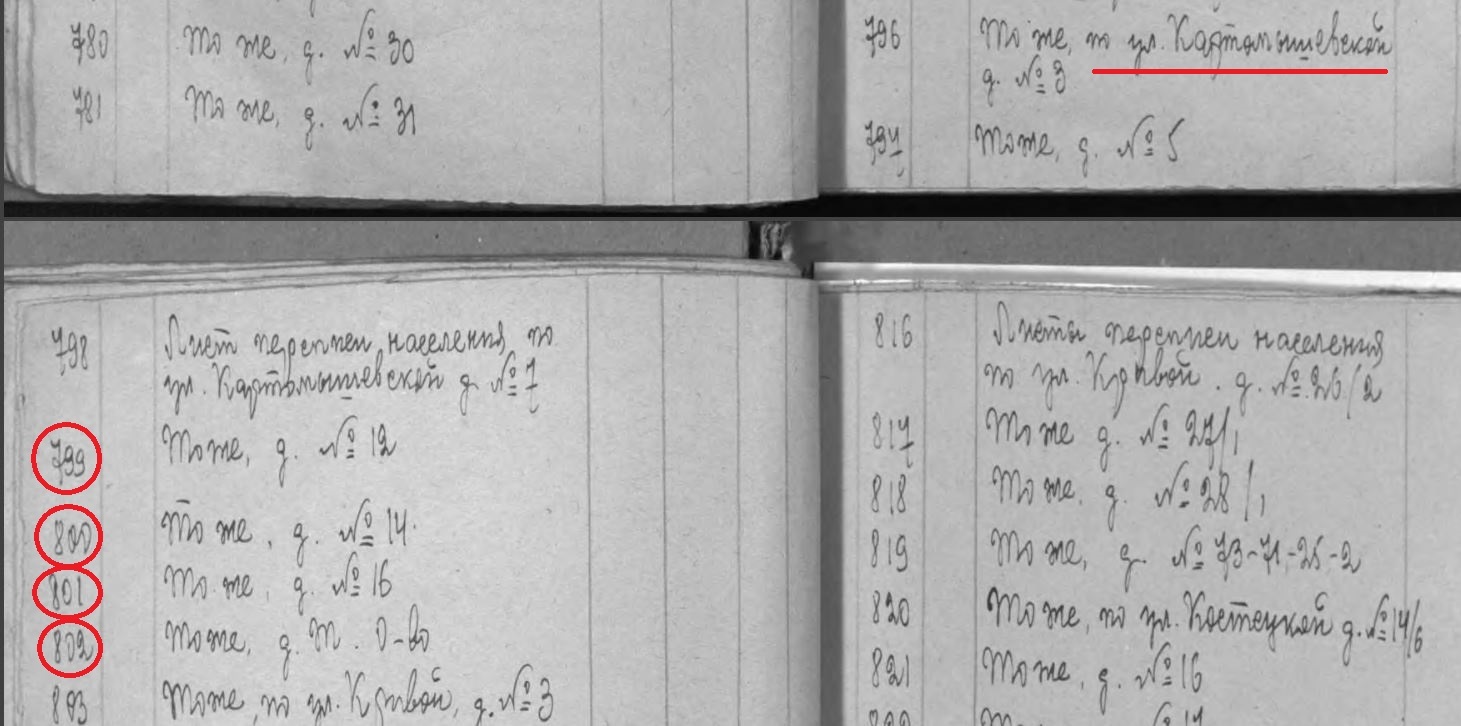 780 То же, д. № 30
781 То же, д. № 31
796 То же, по ул. Картамышевской
д. № 3
797 То же, д. № 5
798 Лист переписи населения по
ул. Картамышевской д. № 7
799 То же, д. № 12
800 То же, д. № 14
801 То же, д. № 16
802 То же, д. Т. О-во
803 То же, по ул. Кривой, д. № 3
816 Листы переписи населения
по ул. Кривой. д. № 26/2
817 То же д. № 27/1
818 То же, д. № 28/1
819 То же, д. № 73-71-25-2
820 То же, по ул. Костецкой д. № 14/6
821 То же, д. № 16